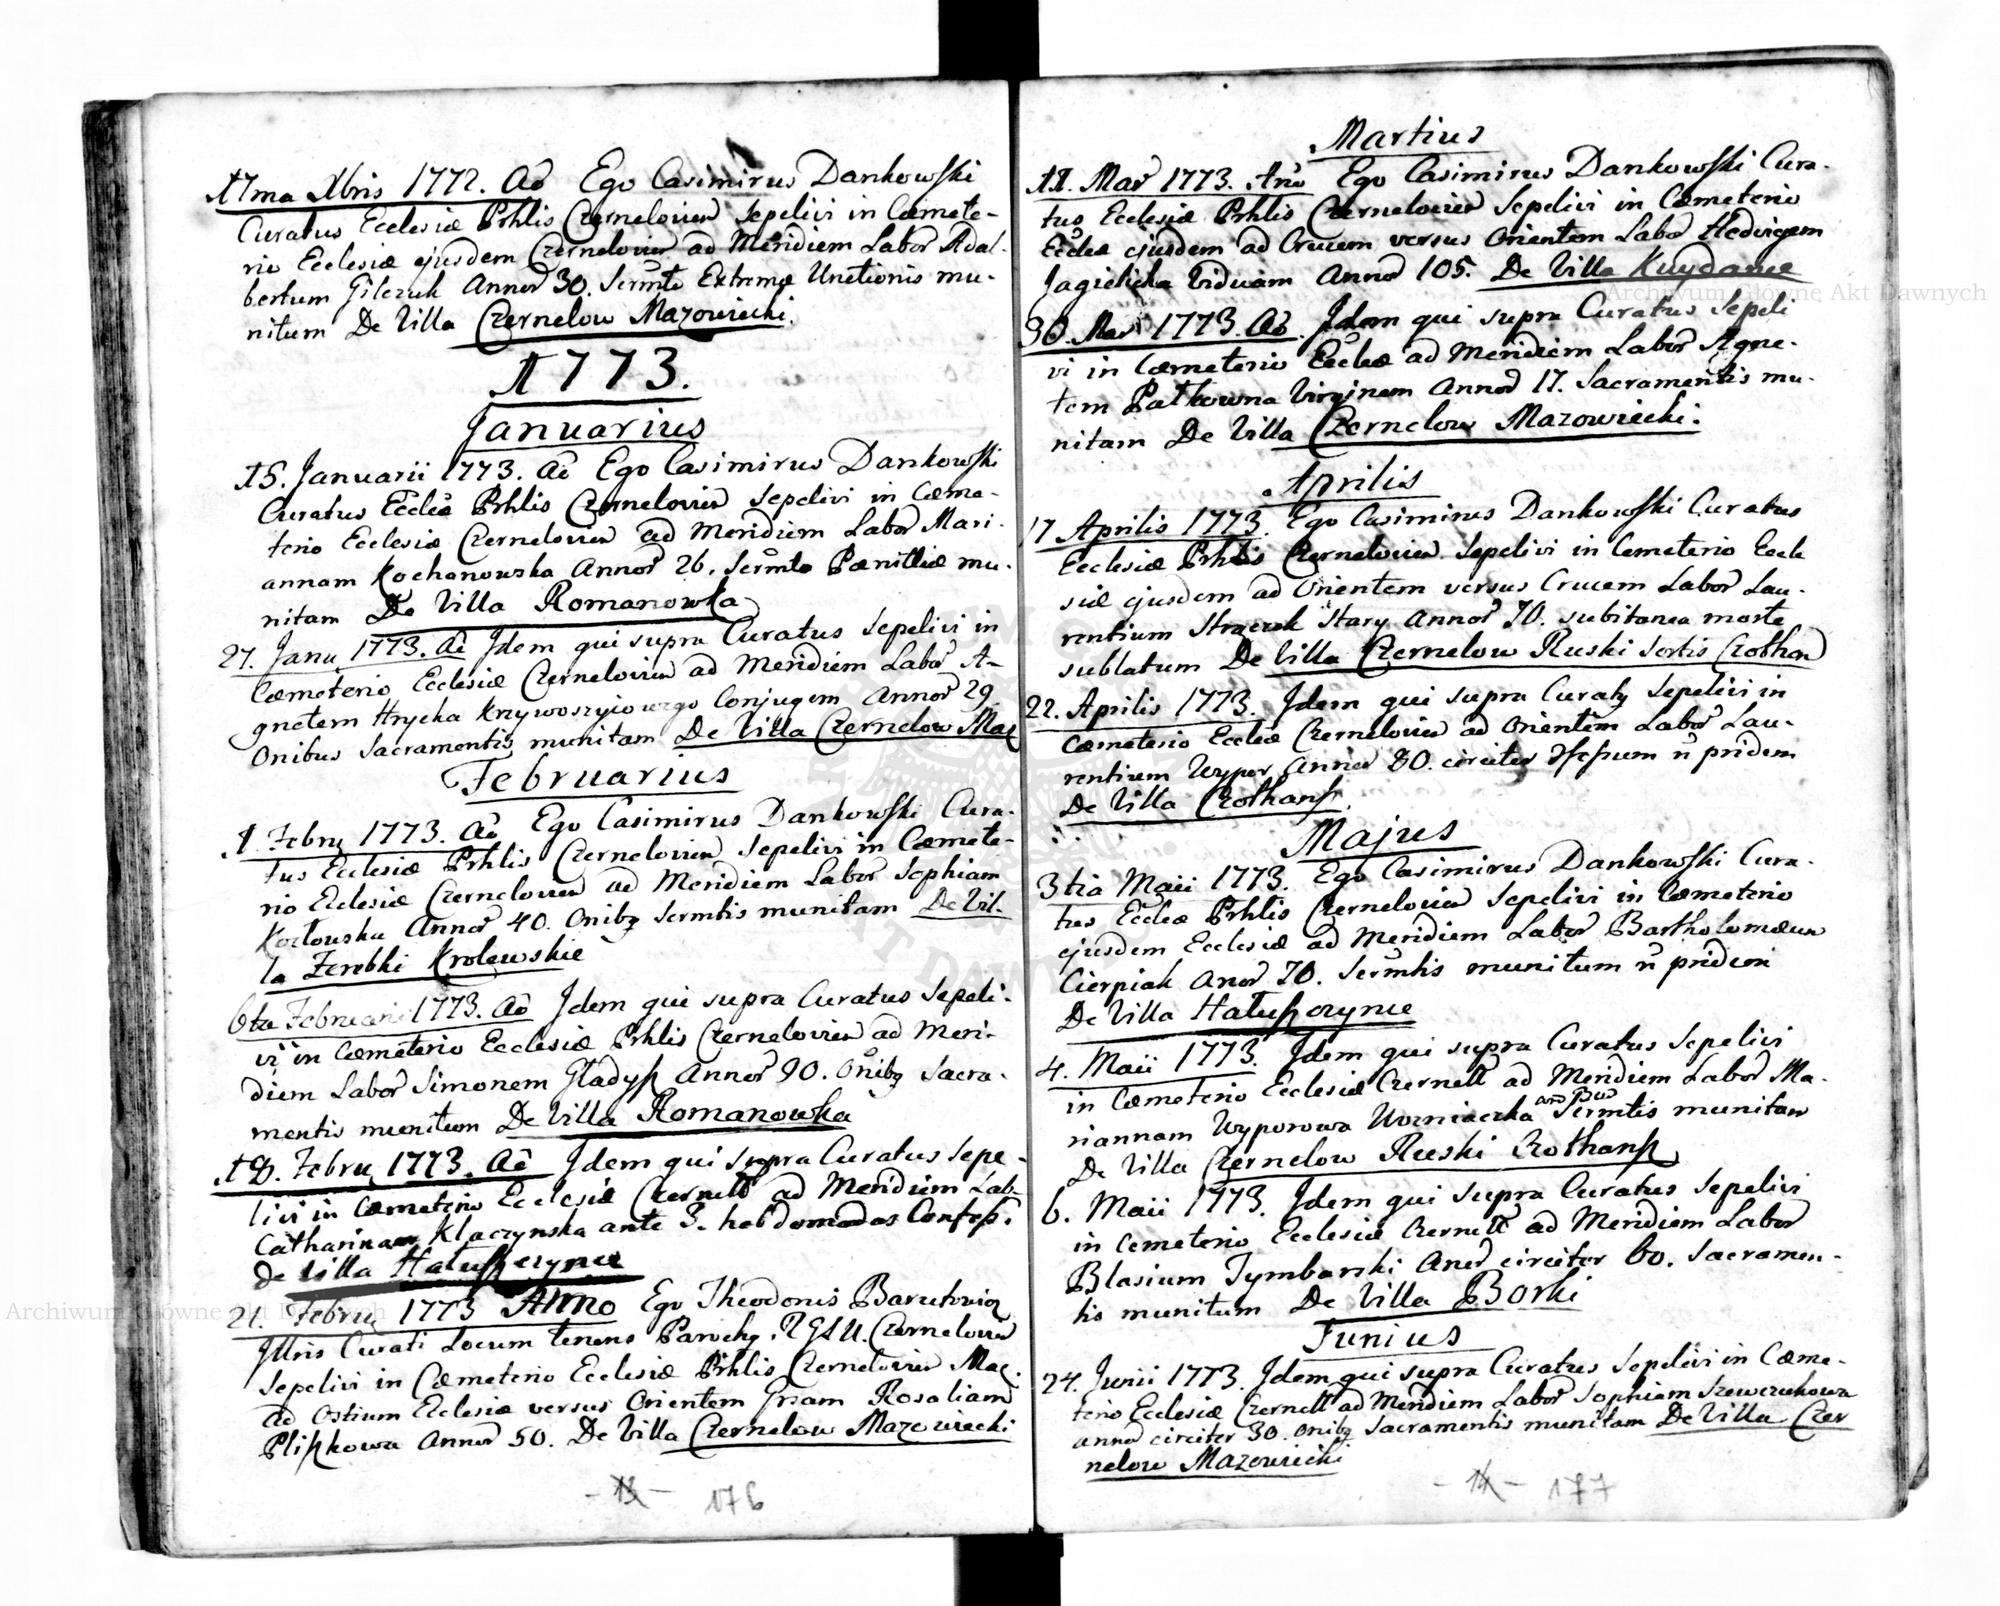 17ma Xbris 1772. Aõ Ego Casimirus Dankowski
Curatus Ecclesiæ Prhlis Czernelovien Sepelivi in Cœmete-
rio Ecclesiæ ejusdem Czernelovien ad Meridiem Labor Adal-
bertum Gilczuk Annor 30. Sermto Extremæ Unctionis mu-
nitum De Villa Czernelow Mazowiecki.
1773.
Januarius
15. Januarii 1773. Aõ Ego Casimirus Dankowski
Curatus Eccleæ Prhlis Czernelovien Sepelivi in Cœme-
terio Ecclesiæ Czernelovien ad Meridiem Labor Mari-
annam Kochanowska Annor 26. Sermto Pœnittiæ mu-
nitam De Villa Romanowka
27. Janu 1773. Aõ Idem qui supra Curatus Sepelivi in
Cœmeterio Ecclesiæ Czernelovien ad Meridiem Labor A-
gnetem Hrycka Krzywoszyiowego Conjugem Annor 29
Onibus Sacramentis munitam De Villa Czernelow Maz
Februarius
1. Febru 1773. Aõ Ego Casimirus Dankowski Cura-
tus Ecclesiæ Prhlis Czernelovien Sepelivi in Cœmete-
rio Ecclesiæ Czernelovien ad Meridiem Labor Sophiam
Kozłowska Annor 40. Onibq Sermtis munitam De Vil-
la Zerebki Krolewskie
6ta Februarii 1773. Aõ Idem qui supra Curatus Sepeli-
vi in Cœmeterio Ecclesiæ Prhlis Czernelovien ad Meri-
diem Labor Simonem Gładysz Annor 90. Onibq Sacra-
mentis munitum De Villa Romanowka
18. Febru 1773. Aõ Idem qui supra Curatus Sepe-
livi in Cœmeterio Ecclesiæ Czernell ad Meridiem Lab.
Catharinam Klaczynska ante 3. hebdomadas Confess.
De Villa Hałuszczynce
21. Febru 1773 Anno Ego Theodorus Barutovicz
Illris Curati Locum tenens Czernelovien
Sepelivi in Cœmeterio Ecclesiæ Prhlis Czernelovien Maz.
Ad Ostium Ecclesiæ versus Orientem Gnsam Rosaliam
Pliszkowa Annor 50. De Villa Czernelow Mazowiecki
- 13 - 176
Martius
11. Mar 1773. Año Ego Casimirus Dankowski Cura-
tus Ecclesiæ Prhlis Czernelovien Sepelivi in Cœmeterio
Eccleæ ejusdem ad Crucem versus Orientem Labo Hedvigem
Jagielicka Viduam Annor 105. De Villa Kuydance
30. Mar 1773. Aõ. Idem qui supra Curatus Sepeli
vi in Cœmeterio Eccleæ ad Meridiem Labor Agne-
tem Patkowna Virginem Annor 17. Sacramentis mu-
nitam De Villa Czernelow Mazowiecki.
Aprilis
17 Aprilis 1773. Ego Casimirus Dankowski Curatus
Ecclesiæ Prhlis Czernelovien Sepelivi in Cemeterio Eccle
siæ ejusdem ad Orientem versus Crucem Labor Lau-
rentium Stary Annor 70. subitanea morte
sublatum De Villa Czernelow Ruski Sortis Crothan
22. Aprilis 1773. Idem qui supra Curatq Sepelivi in
Cœmeterio Eccleæ Czernelovien ad Orientem Labor Lau-
rentium Wypor Annor 80. circiter n pridem
De Villa Crothansz.
Majus
3tia Maii 1773. Ego Casimirus Dankowski Cura-
tus Eccleæ Prhlis Czernelovien Sepelivi in Cœmeterio
ejusdem Ecclesiæ ad Meridiem Labor Bartholomæum
Cierpiak Anor 70. Sermtis munitum n pridem
De Villa Hałuszczynce
4. Maii 1773. Idem qui supra Curatus Sepelivi
in Cœmeterio Ecclesiæ Czernell ad Meridiem Labor Ma-
riannam Wyporowa Wozniaczka Sermtis munitam
De Villa Czernelow Ruski Crothansz
6. Maii 1773. Idem qui supra Curatus Sepelivi
in Cemeterio Ecclesiæ Czernell ad Meridiem Labor
Blasium Tymbarski Anor circiter 60. Sacramen-
tis munitum De Villa Borki
Junius
24. Junii 1773. Idem qui supra Curatus Sepelivi in Cœme-
terio Ecclesiæ Czernell ad Meridiem Labor Sophiam Szewczukowa
annor circiter 30. Onibq Sacramentis munitam De Villa Czer
nelow Mazowiecki
- 14 - 177
Archiwum Główne Akt Dawnych
Archiwum Główne Akt Dawnych